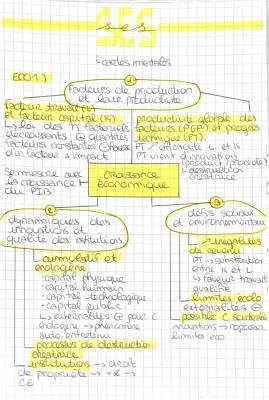 SES
ses
cartes mentales
ECO 1)
1
facteurs de production
et leur productivité
facteur travail (L)
et facteur capital (K)
↳ loi des rdt factoriels
décroissants : ⊕ quantités
facteurs constantes ⊕ hausse
d'un facteur a impact
productivité globale des
facteurs (PGF) et progrès
technique (PT).
PT / efficacité L et K
PT vient d'innovations
(produit / procédé)
↳ destruction
créatrice
Se mesure avec
la croissance
du PIB
CROISSANCE
économique
2
dynamiques des
innovations et
qualité des institutions
cumulatif et
endogène
·capital physique
·capital humain
·capital technologique
·capital public
↳ externalités ⊕ pour C
endogène → phénomène
auto-entretenu
processus de destruction
créatrice
institutions → droit
de propriété
CE
3
défis sociaux
et environnementaux
↗ inégalités
de revenu
PT → substitution
entre K et L
↳ faveur travail
qualifié
limites écolo
externalités ⊖
possible C soutenable
innovations → repousser
limites éco